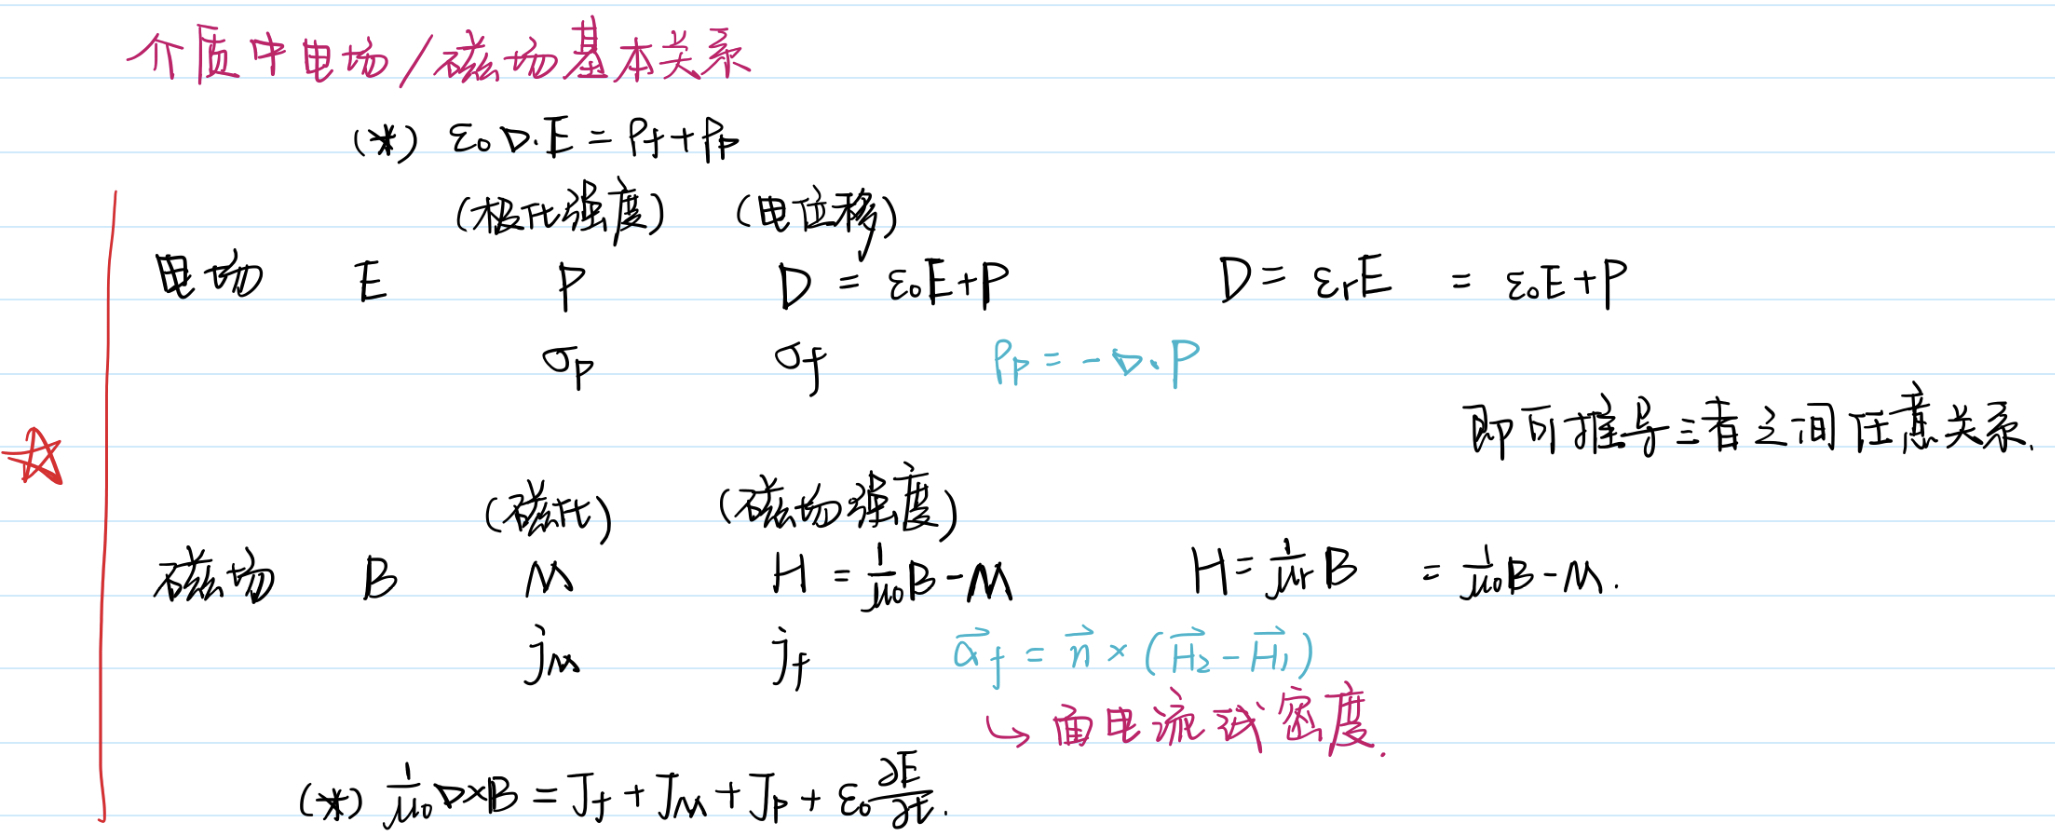 介质中电场/磁场基本关系
(*) ε₀∇·E = ρf + ρp
(极化强度) (电位移)
电场 E P D = ε₀E+P D = εrE = ε₀E+P
σp σf ρp = -∇·P
即可推导三者之间任意关系.
(磁化) (磁场强度)
磁场 B M H = 1/μ₀ B - M H = 1/μr B = 1/μ₀ B - M.
jM jf α⃗f = n⃗ × (H⃗₂ - H⃗₁)
↳ 面电流线密度.
(*) 1/μ₀ ∇×B = Jf + JM + Jp + ε₀ ∂E/∂t.